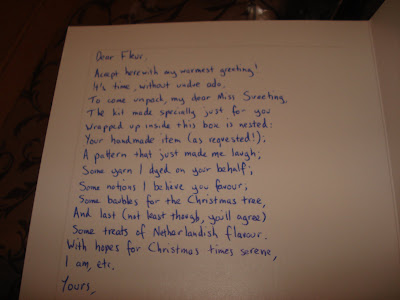 Dear Fleur,
Accept herewith my warmest greeting!
It's time, without undue ado,
To come unpack, my dear Miss Sweeting,
The kit made specially just for you
Wrapped up inside this box is nested:
Your handmade item (as requested!);
A pattern that just made me laugh;
Some yarn I dyed on your behalf;
Some notions I believe you favour;
Some baubles for the Christmas tree,
And last (not least though, you'll agree)
Some treats of Netherlandish flavour.
With hopes for Christmas times serene,
I am, etc.
Yours,